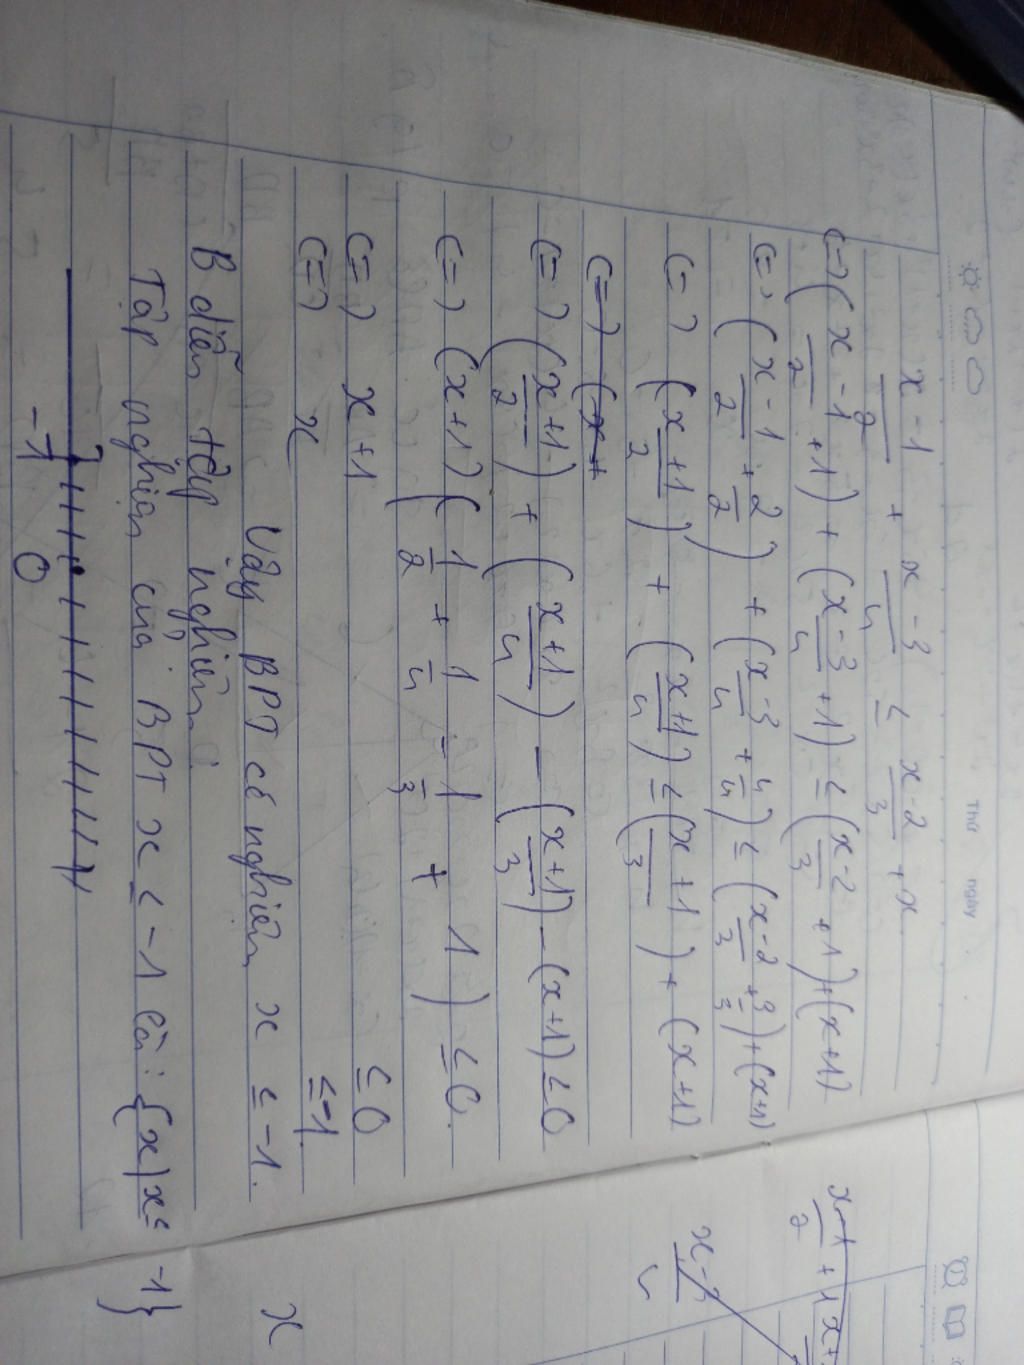 Thứ ngày
x-1/2 + x-3/4 ≤ x-2/3 + x
(=) (x-1/2 + 1) + (x-3/4 + 1) ≤ (x-2/3 + 1) + (x+1)
(=) (x-1/2 + 2/2) + (x-3/4 + 4/4) ≤ (x-2/3 + 3/3) + (x+1)
(=) (x+1/2) + (x+1/4) ≤ (x+1/3) + (x+1)
(=) (x+
(=) (x+1/2) + (x+1/4) - (x+1/3) - (x+1) ≤ 0
(=) (x+1) (1/2 + 1/4 - 1/3 + 1) ≤ 0.
(=) x+1 ≤ 0
(=) x ≤ -1.
Vậy BPT có nghiệm x ≤ -1.
B diễn tập nghiệm.
Tập nghiệm của BPT x ≤ -1 là: {x|x≤ -1}
-1 0
x+1/2 + 1 x+
x-1
x